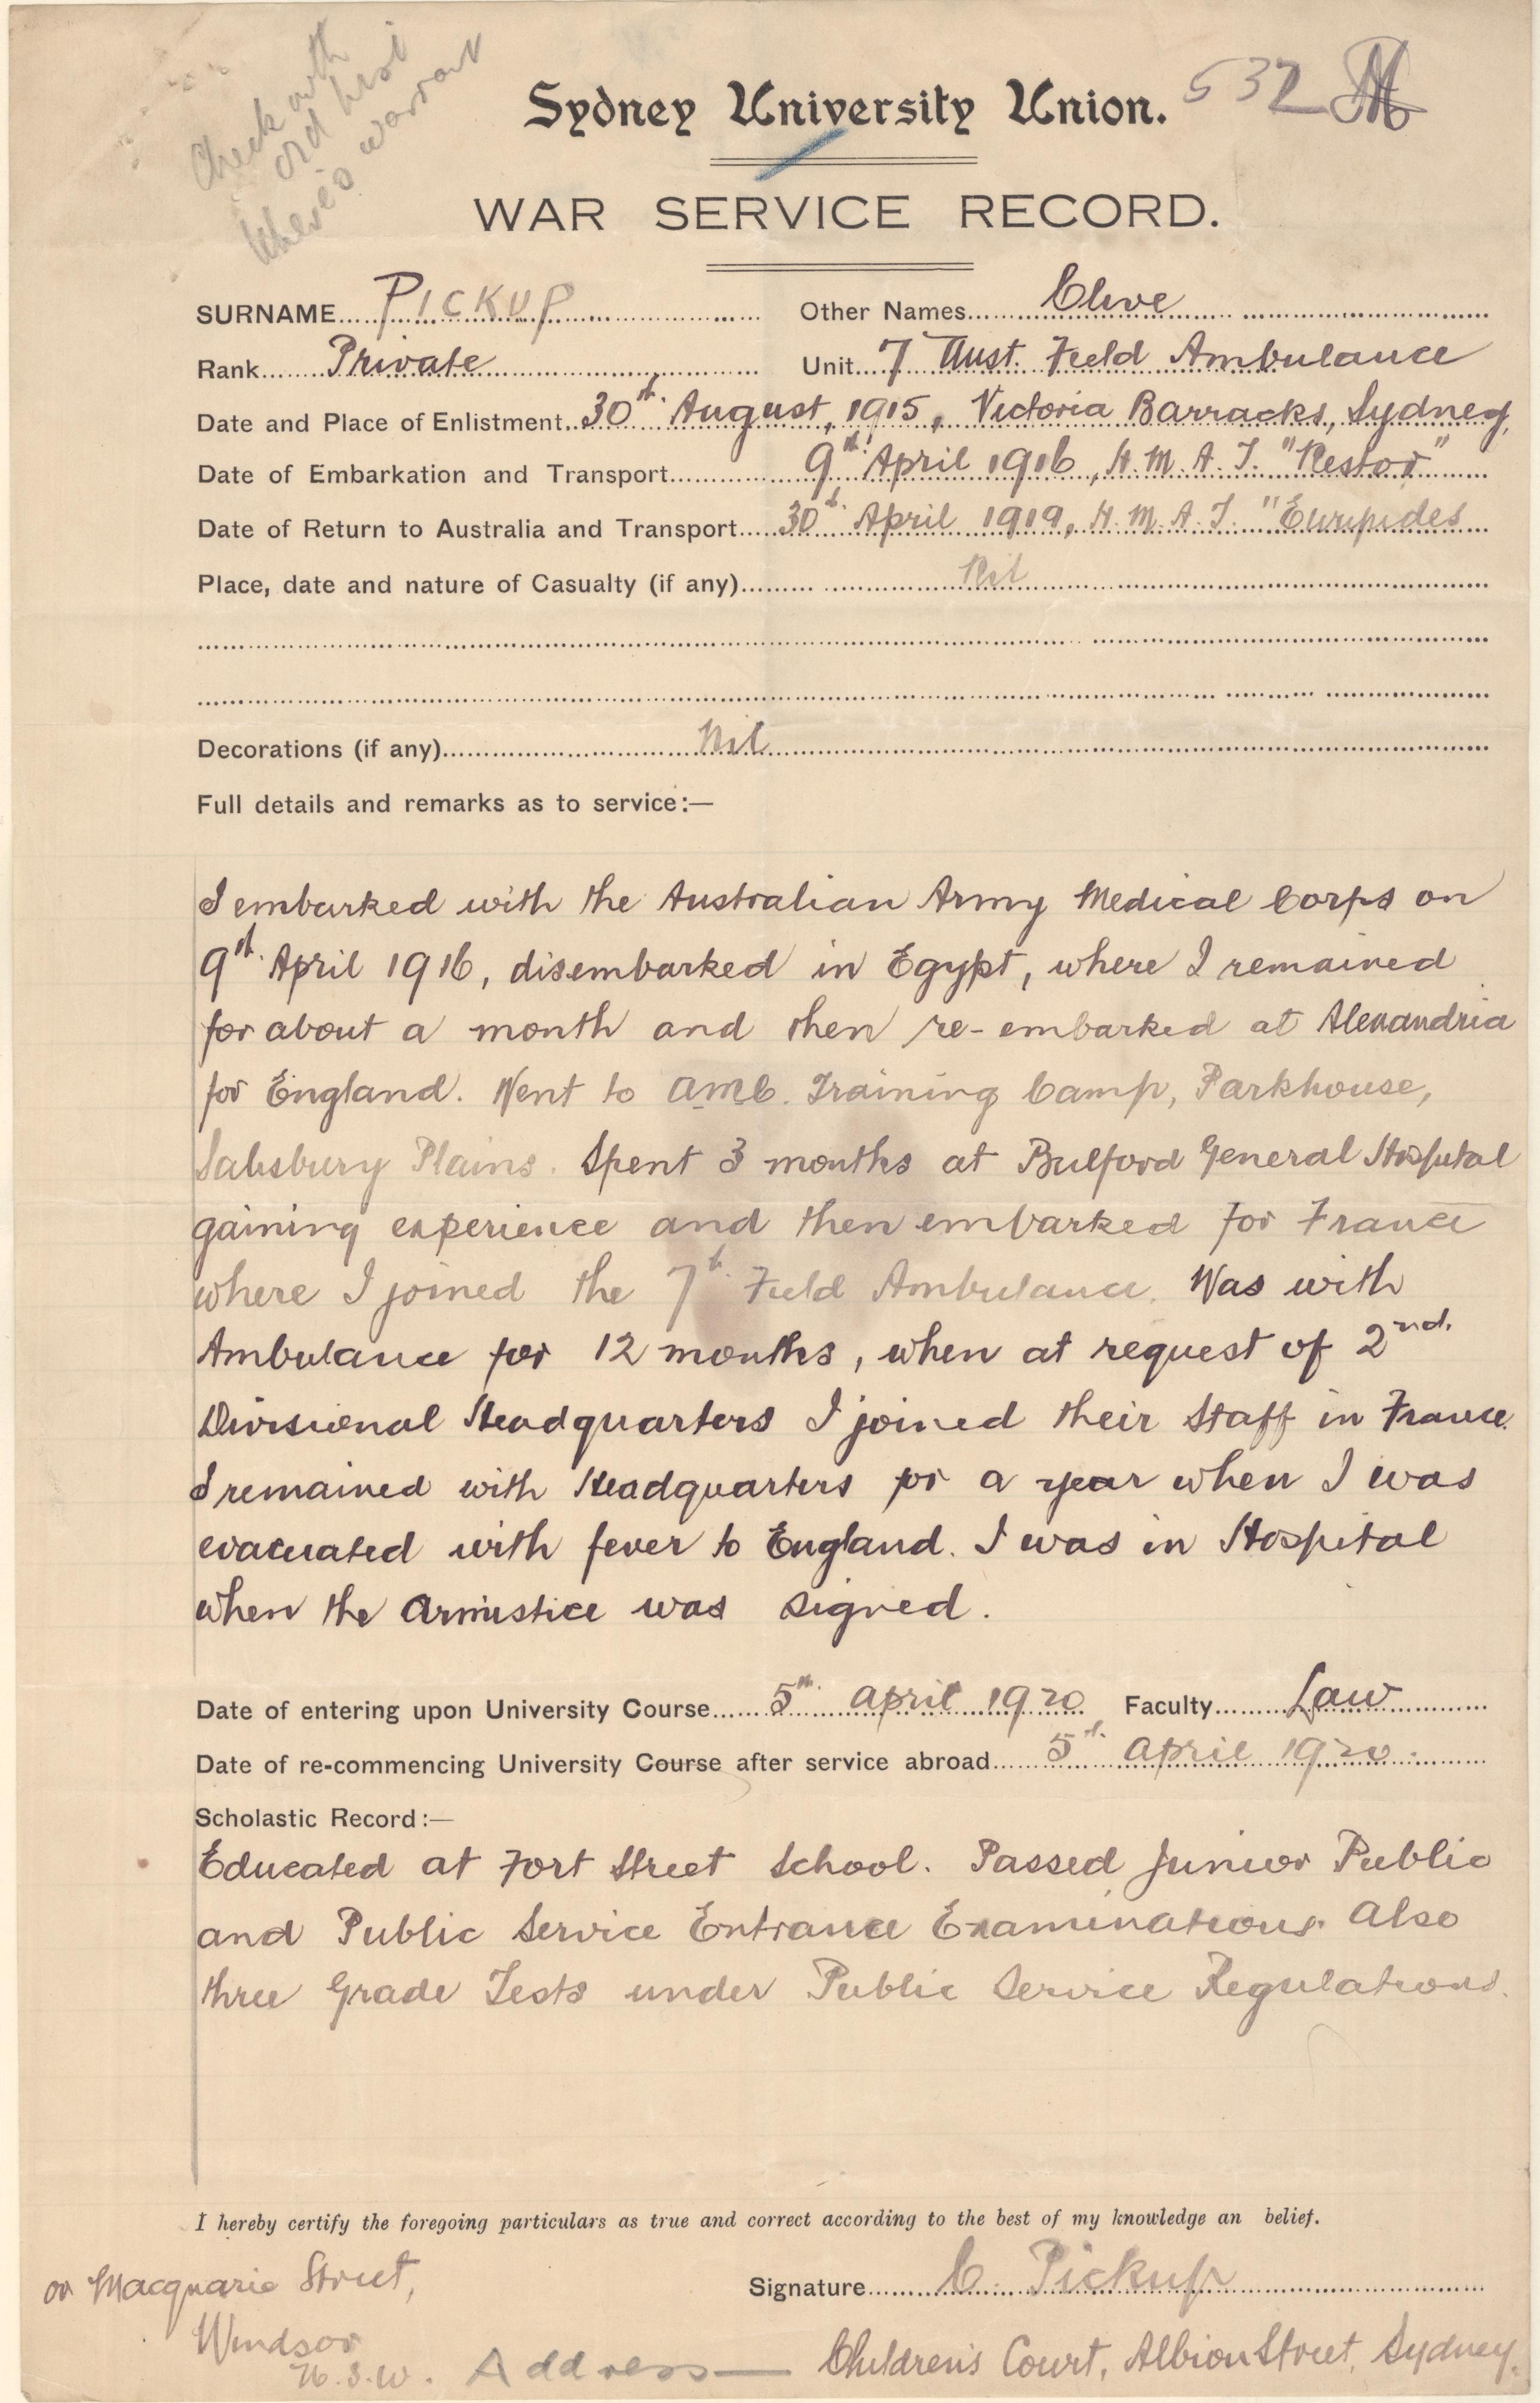 Check with
ord hist
where's warrant
Sydney University Union. 532
WAR SERVICE RECORD.
SURNAME PICKUP Other Names Clive
Rank Private Unit 7 Aust. Field Ambulance
Date and Place of Enlistment 30th August, 1915, Victoria Barracks, Sydney,
Date of Embarkation and Transport 9th April 1916, H.M.A.T. "Nestor"
Date of Return to Australia and Transport 30th April 1919, H.M.A.T. "Euripides
Place, date and nature of Casualty (if any) Nil
Decorations (if any) Nil
Full details and remarks as to service:—
I embarked with the Australian Army Medical Corps on
9th April 1916, disembarked in Egypt, where I remained
for about a month and then re-embarked at Alexandria
for England. Went to A.M.C. Training Camp, Parkhouse,
Salisbury Plains. Spent 3 months at Bulford General Hospital
gaining experience and then embarked for France
where I joined the 7th Field Ambulance. Was with
Ambulance for 12 months, when at request of 2nd.
Divisional Headquarters I joined their Staff in France.
I remained with Headquarters for a year when I was
evacuated with fever to England. I was in Hospital
when the Armistice was signed.
Date of entering upon University Course 5th April 1920 Faculty Law
Date of re-commencing University Course after service abroad 5th April 1920.
Scholastic Record:—
Educated at Fort Street School. Passed Junior Public
and Public Service Entrance Examinations. Also
three Grade Tests under Public Service Regulations.
I hereby certify the foregoing particulars as true and correct according to the best of my knowledge an belief.
Signature C. Pickup
or Macquarie Street,
Windsor
N.S.W. Address — Children's Court, Albion Street, Sydney.